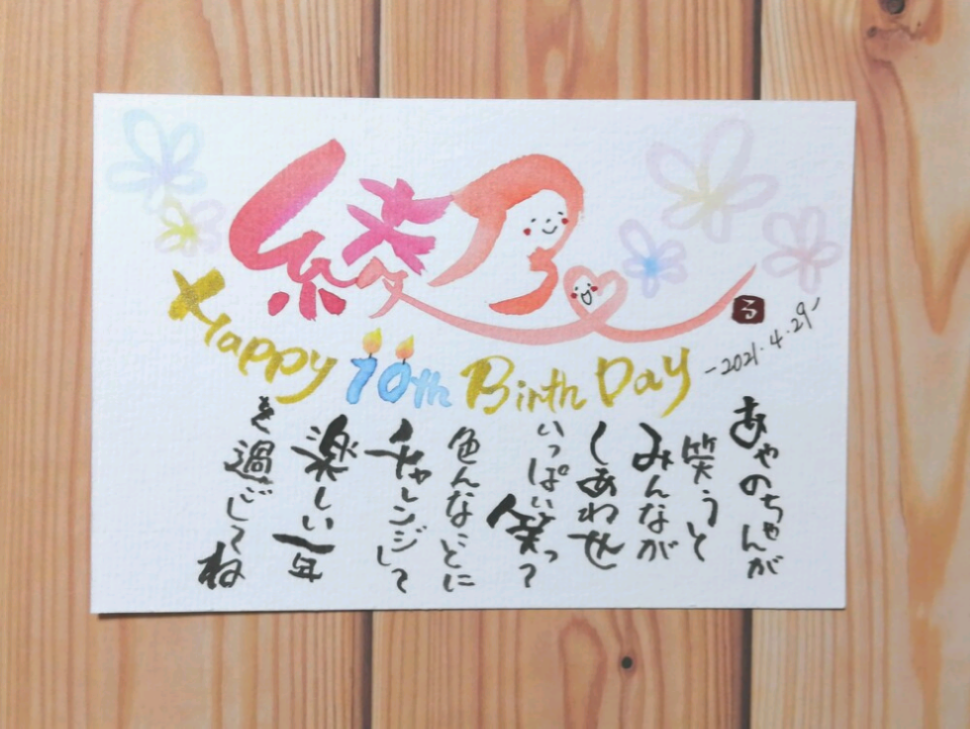 綾乃
る
Happy 10th Birth Day
-2021.4.29-
あやのちゃんが
笑うと
みんなが
しあわせ
いっぱい笑って
色んなことに
チャレンジして
楽しい一年
を過ごしてね